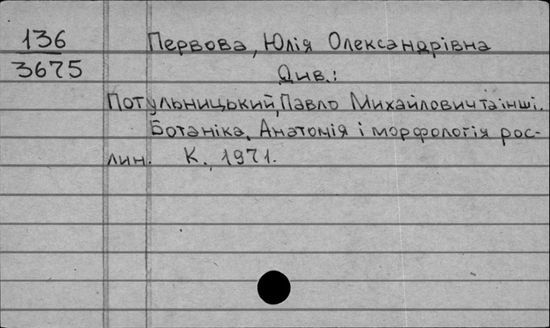 136
3675
Первова, Юлія Олександрівна
Див.:
Потульницький, Павло Михайлович та інші.
Ботаніка. Анатомія і морфологія рос-
лин. К., 1971.